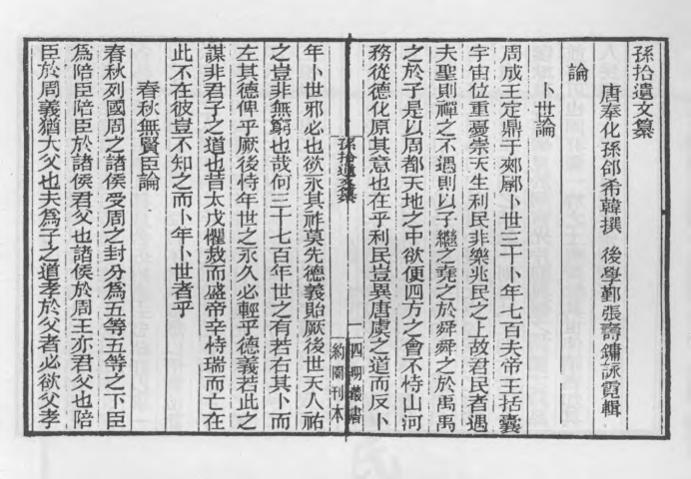 孫拾遺文纂
唐奉化孫郃希韓撰　後學鄞張壽鏞詠霓輯
論
卜世論
周成王定鼎于郟鄏卜世三十卜年七百夫帝王括囊
宇宙位重憂崇天生利民非樂兆民之上故君民者遇
夫聖則禪之不遇則以子繼之堯之於舜舜之於禹禹
之於子是以周都天地之中欲便四方之會不恃山河
務從德化原其意也在乎利民豈異唐虞之道而反卜
孫拾遺文纂
一
四明叢書
約園刊本
年卜世邪必也欲永其祚莫先德義貽厥後世天人祐
之豈非無窮也哉何三十七百年世之有若右其卜而
左其德俾乎厥後恃年世之永久必輕乎德義若此之
謀非君子之道也昔太戊懼救而盛帝辛恃瑞而亡在
此不在彼豈不知之而卜年卜世者乎
春秋無賢臣論
春秋列國周之諸侯受周之封分為五等五等之下臣
為陪臣陪臣於諸侯君父也諸侯於周王亦君父也陪
臣於周義猶大父也夫為子之道孝於父者必欲父孝